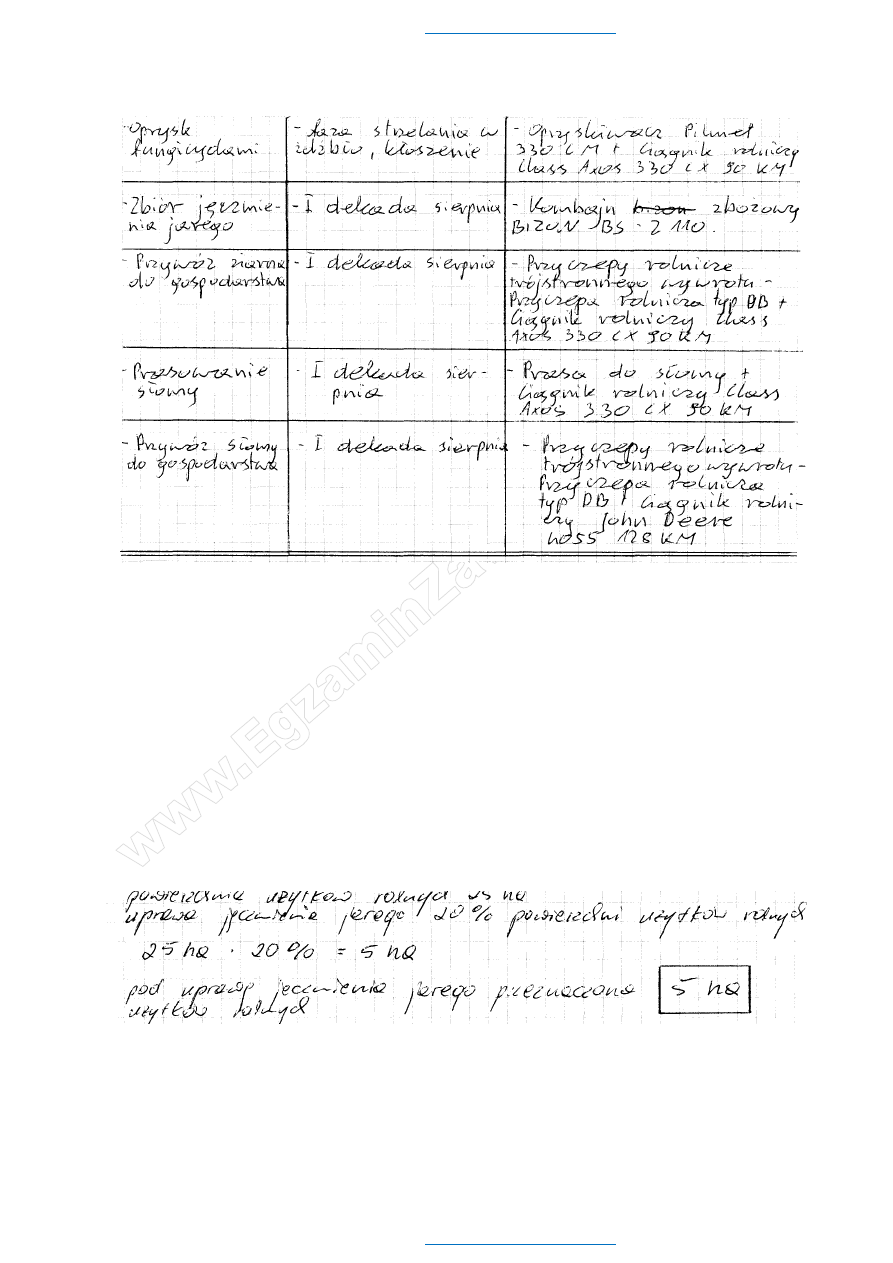 - Oprysk fungicydami
- faza strzelania w źdźbło, kłoszenie
- Opryskiwacz Pilmet 330 LM + Ciągnik rolniczy Class Axos 330 CX 90 KM
- Zbiór jęczmie-
nia jarego
- I dekada sierpnia
- Kombajn bizon zbożowy
BIZON BS - Z 110.
- Przywóz ziarna
do gospodarstwa
- I dekada sierpnia
- Przyczepy rolnicze
trójstronnego wywrotu -
Przyczepa rolnicza typ DB +
Ciągnik rolniczy Class
Axos 330 CX 90 KM
- Prasowanie
słomy
- I dekada sier-
pnia
- Prasa do słomy +
Ciągnik rolniczy Class
Axos 330 CX 90 KM
- Przywóz słomy
do gospodarstwa
- I dekada sierpnia
- Przyczepy rolnicze
trójstronnego wywrotu -
Przyczepa rolnicza
typ DB + Ciągnik rolni-
czy John Deere
128 KM
www.EgzaminZa
powierzchnia użytków rolnych 25 ha
uprawa jęczmienia jarego 20% powierzchni użytków rolnych
25 ha · 20% = 5 ha
pod uprawę jęczmienia jarego przeznaczono 5 ha
użytków rolnych